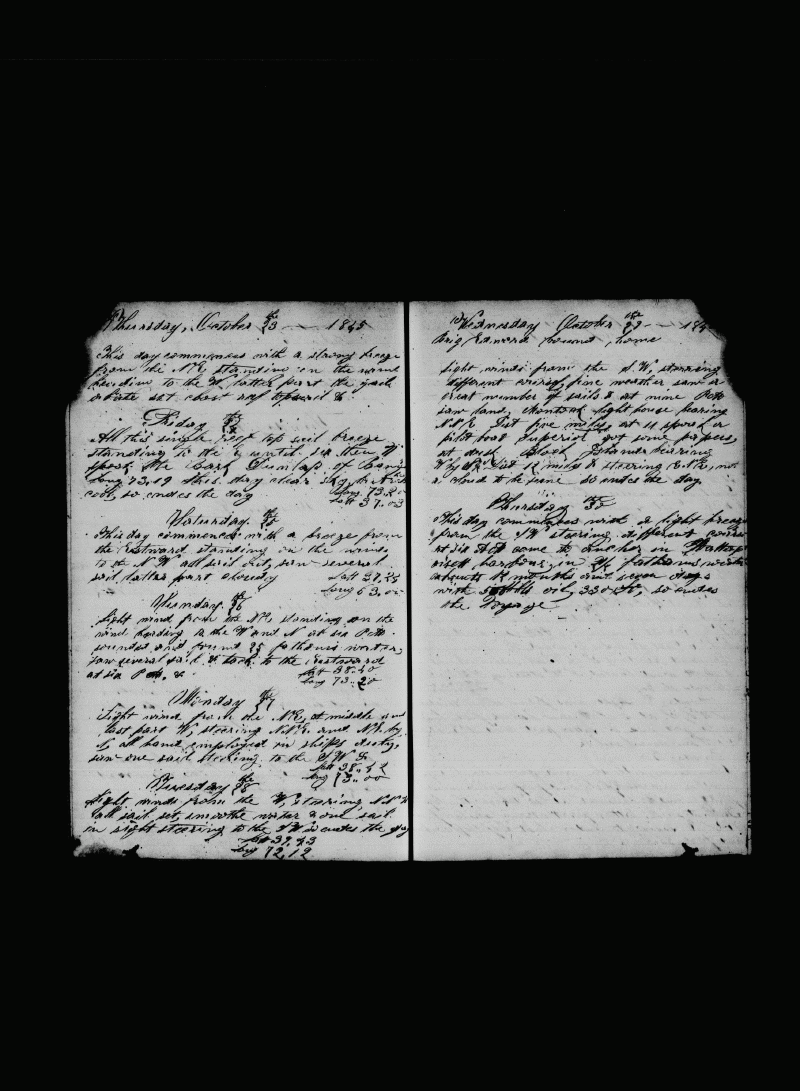 Thursday, October 23th — 1845
This day commences with a strong breeze
from the N.E. standing on the wind
heading to the W latter part the gail
abate set close reef topsail &
Friday 24th
All this single reef top sail breeze
standing to the until six then
spoke the Bark Dunlap of
long 73,19 this day clear sky, the air is
cool, so endes the day long 73.20
Latt 37.03
Saturday 25th
This day commences with a breeze from
the Eastward standing on the wind
to the N.W all sail out, saw several
sail latter part cloudy Latt 37.25
Long 73,00
Sunday 26th
Light wind from the NE, standing on the
wind heading to the W and N at six P.M.
sounded and found 25 fathoms water,
saw several sail & tack to the Eastward
at six P.M. & Latt 38.40
Long 73.20
Monday 27th
Light wind from the N.E, at middle and
last part W, steering N.N.E. and N.E. by
N, all hand employed in ships duty,
saw one sail standing to the S.W &
Latt 38.52
long 73.00
Tuesday 28th
Light winds from the W, steering N.N.E
all sail set, smoothe water & one sail
in sight steering to the S.W so endes the day
Latt 39.43
Long 72,12
Wednesday October 29th — 184
Brig bound home
Light winds from the S.W, stearing
different corses, fine weather saw a
great number of sails & at nine P.M
saw land, Montauk light house bearing
N.N.E. Dist five miles at 11 spoke a
pilot boat Superior got some papers,
at dusk Block Island bearing
W by S. Dist 12 miles & steering E.N.E, no
a cloud to be seen so endes the day
Thursday 30th
This day commences with a light breeze
from the SW steering different corses
at six P.M come to anchor in Mattap
oisett harbour, in 2½ fathoms water
absents 12 months and seven days
with oil, 330 so endes
the Voyage